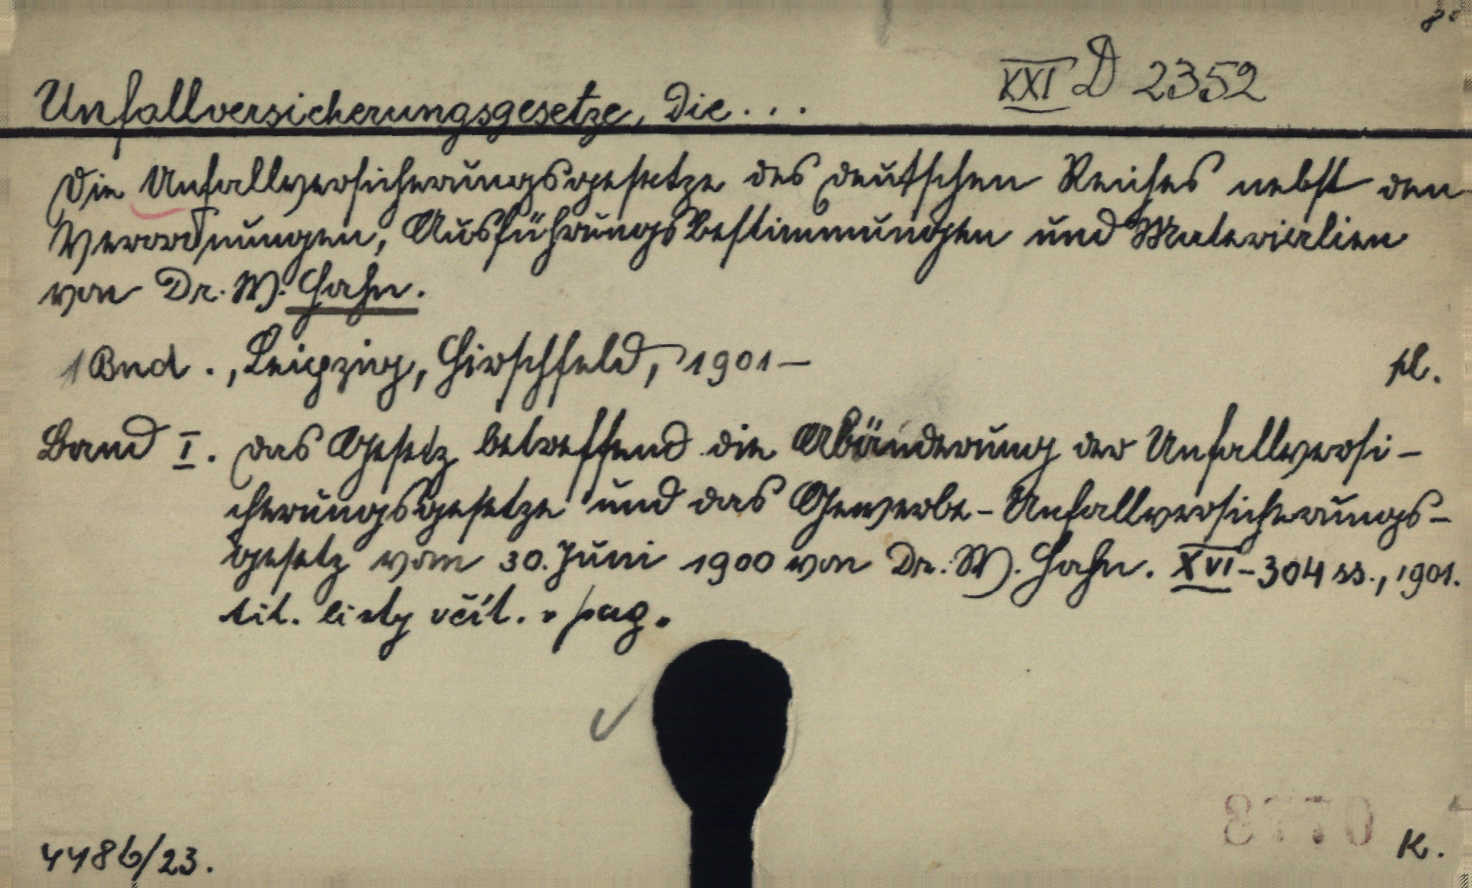 8°
Unfallversicherungsgesetze, Die...
XXI D 2352
Die Unfallversicherungsgesetze des deutschen Reiches nebst den
Verordnungen, Ausführungsbestimmungen und Materialien
von Dr. W. Hahn.
1 Bnd., Leipzig, Hirschfeld, 1901 –
pl.
Band I. Das Gesetz betreffend die Abänderung der Unfallversi-
cherungsgesetze und das Gewerbe-Unfallversicherungs-
gesetz vom 30. Juni 1900 von Dr. W. Hahn. XVI-304 ss., 1901.
tit. listy včít. v pag.
4486/23.
K.